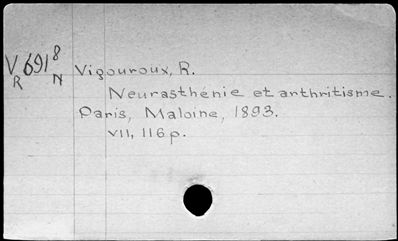 V 691 8
R N
Vigouroux, R.
Neurasthénie et arthritisme.
Paris, Maloine, 1893.
VII, 116 p.